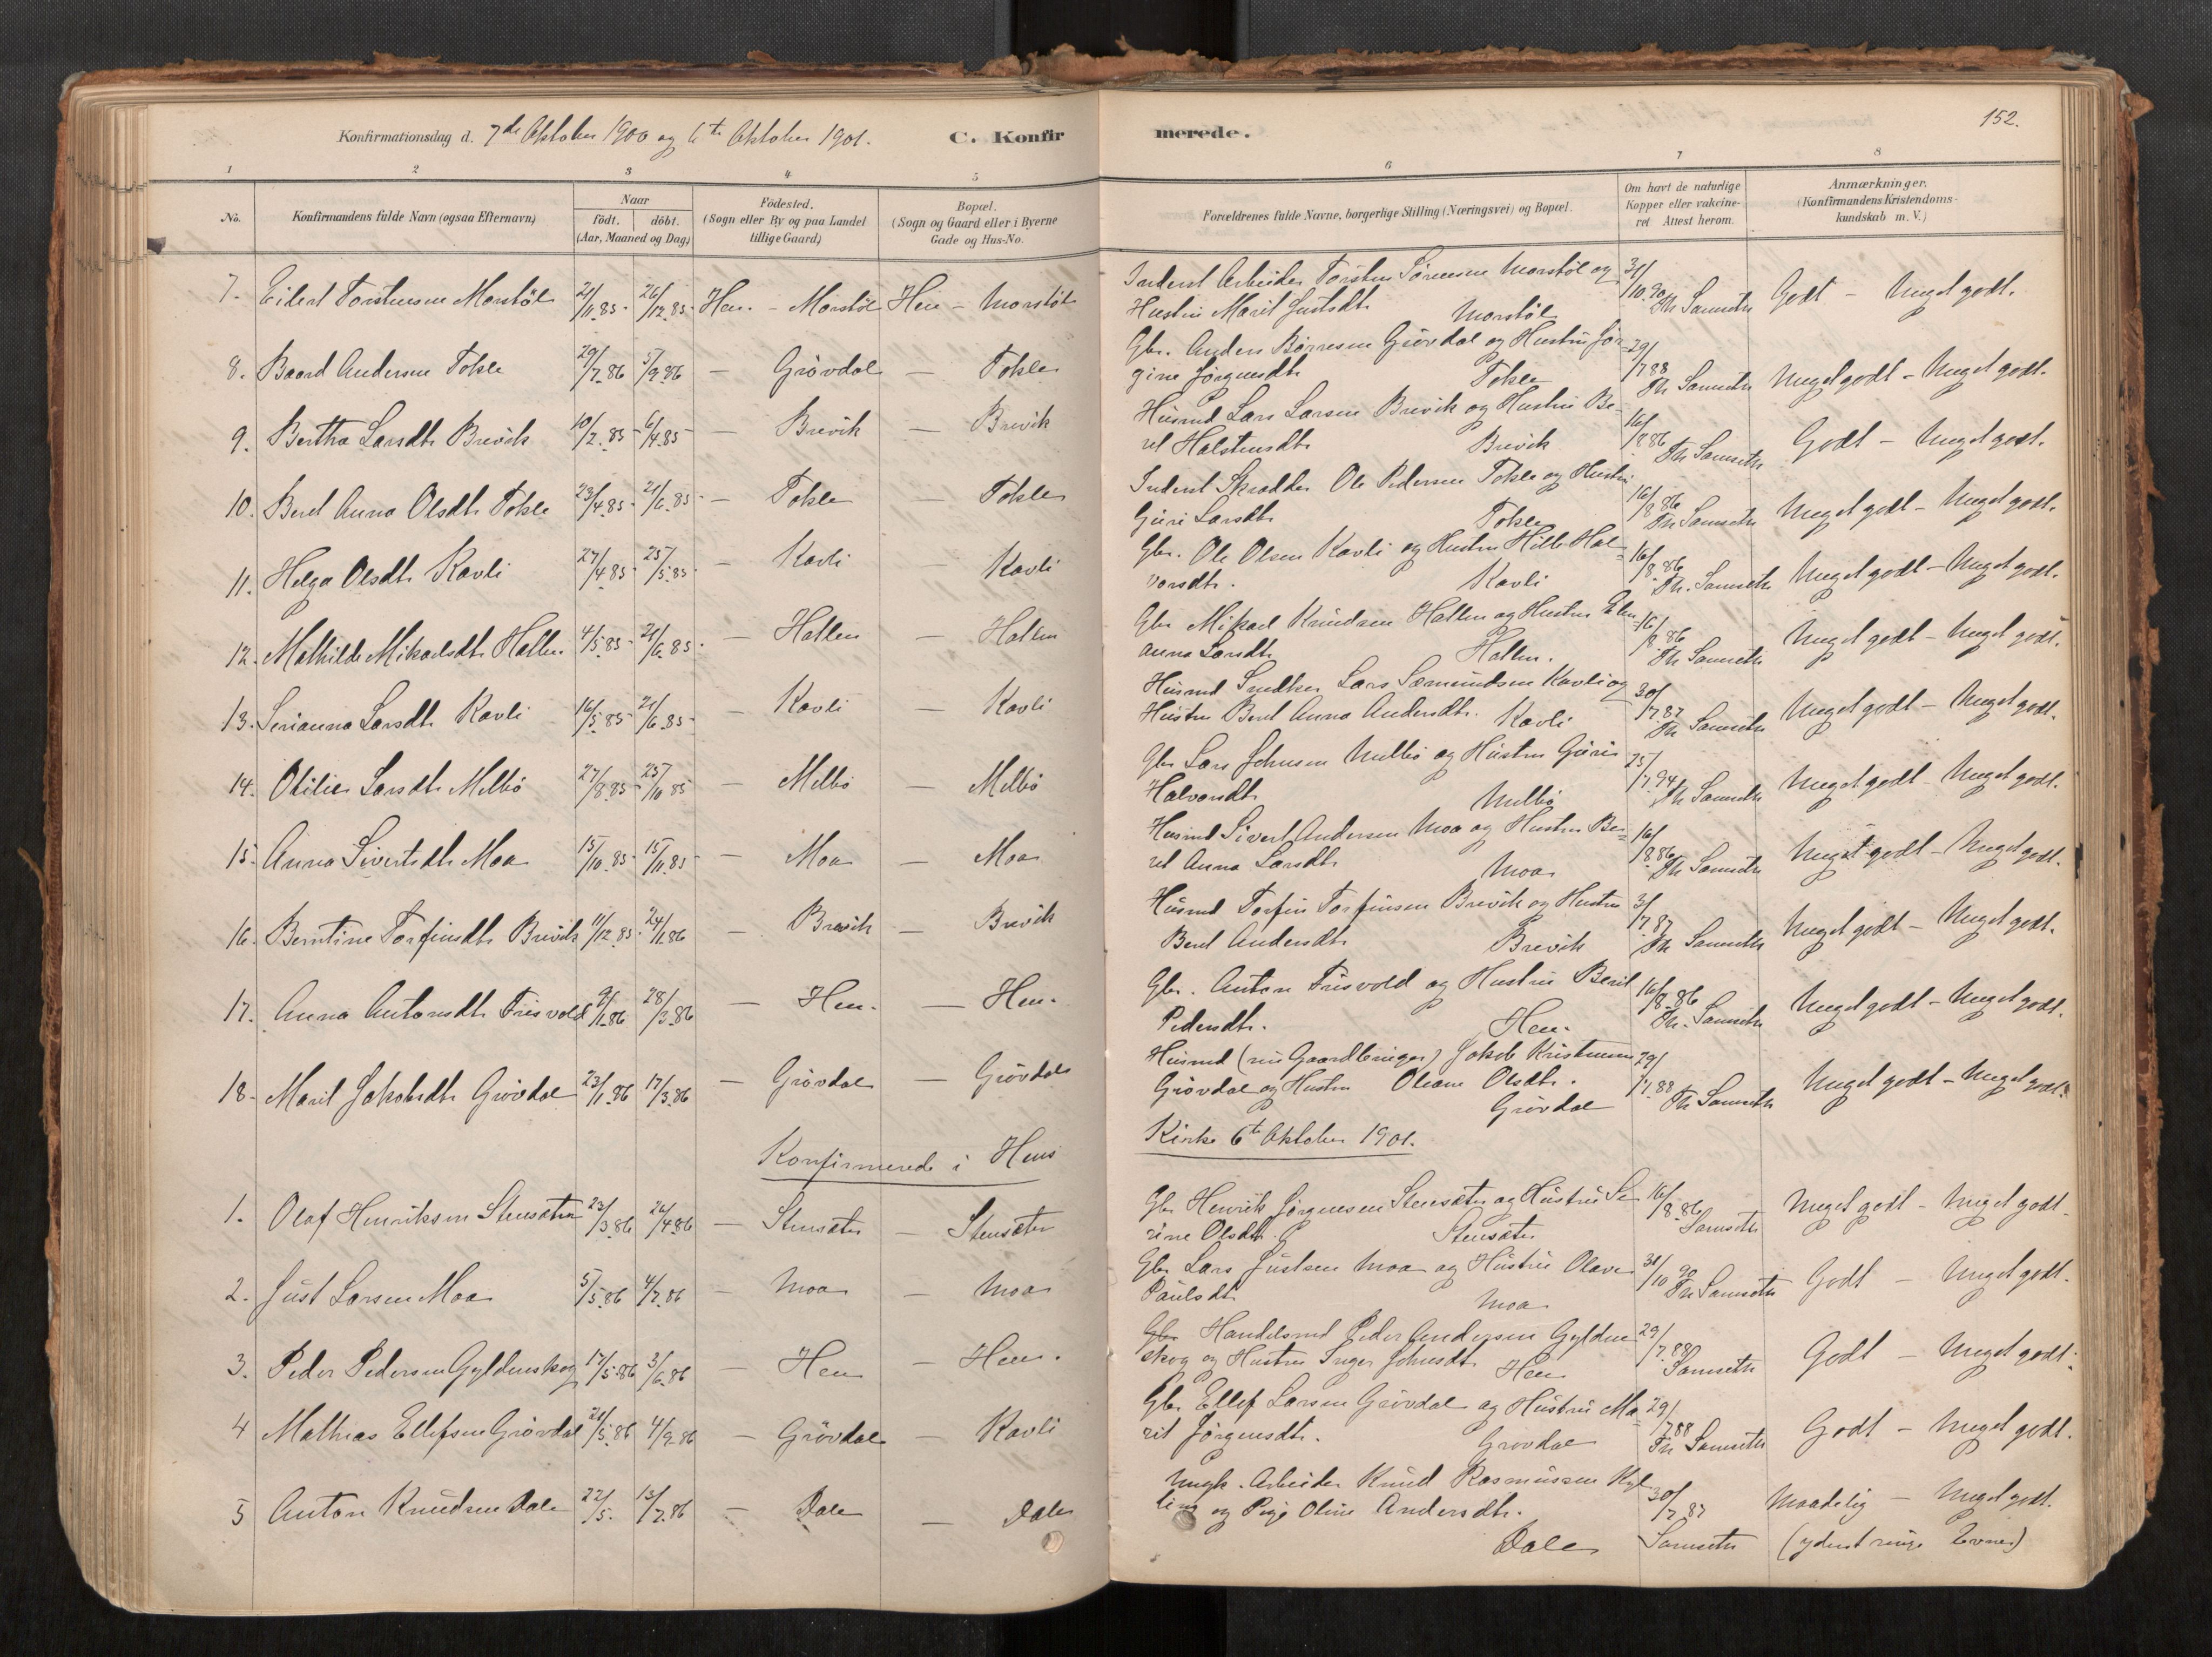 Konfirmationsdag d. 7de Oktober 1900 og 6te Oktober 1901. C. Konfirmerede. 152.
1 2 3 4 5 6 7 8
No. Konfirmandens fulde Navn (ogsaa Efternavn) Naar født. døbt. (Aar, Maaned og Dag) Födested. (Sogn eller By og paa Landet tillige Gaard) Bopæl. (Sogn og Gaard eller i Byerne Gade og Hus-No. Forældrenes fulde Navne, borgerlige Stilling (Næringsvei) og Bopæl. Om havt de naturlige Kopper eller vakcineret Attest herom. Anmærkninger. (Konfirmandens Kristendomskundskab m. V.)
7. Eilert Torstensen Morstöl 21/11.85. 26/12.85. Hen. - Morstöl Hen - Morstöl Inderst Arbeider Torsten Sörensen Morstöl og 31/10.90
Hustru Marit Justsdtr. Morstöl Th Samseth Godt - Meget godt.
8. Baard Andersen Tokle 29/7.86 5/9.86 - Grövdal - Tokle Gbr. Anders Börresen Grövdal og Hustru Jör- 29/7.88
gine Jörgensdtr. Tokle Th Samseth Meget godt - Meget godt.
9. Bertha Larsdtr. Brevik 10/2.85 6/4.85 - Brevik - Brevik Husmd Lars Larsen Brevik og Hustru Be- 16/8.86
ret Halstensdtr. Brevik Th Samseth Godt - Meget godt.
10. Beret Anna Olsdtr. Tokle 23/4.85. 21/6.85. - Tokle - Tokle Inderst Skrædder Ole Pedersen Tokle og Hustru 16/8.86
Guri Larsdtr. Tokle Th Samseth Meget godt - Meget godt.
11. Helga Olsdtr. Kavli 27/4.85. 25/5.85. - Kavli - Kavli Gbr. Ole Olsen Kavli og Hustru Hille Hal- 16/8.86
vorsdtr. Kavli Th. Samseth Meget godt - Meget godt.
12. Mathilde Mikaelsdtr. Hallen 4/5.85. 21/6.85. - Hallen - Hallen Gbr Mikael Knudsen Hallen og Hustru Elen 16/8.86
Anna Larsdtr. Hallen. Th Samseth Meget godt - Meget godt.
13. Serianna Larsdtr. Kavli 16/5.85. 21/6.85. - Kavli - Kavli Husmd Snedker Lars Sæmundsen Kavli og 30/7.87
Hustru Beret Anna Andersdtr. Kavli Th Samseth Meget godt - Meget godt.
14. Otilie Larsdtr. Melbö 27/8.85 25/10.85 - Melbö - Melbö Gbr Lars Johnsen Melbö og Hustru Guri 25/7.94
Halvorsdtr. Melbö Th Samseth Meget godt - Meget godt.
15. Anna Sivertsdtr. Moa 15/10.85. 15/11.85 - Moa - Moa Husmd Sivert Andersen Moa og Hustru Be- 16/8.86
ret Anna Larsdtr. Moa Th Samseth Meget godt - Meget godt.
16. Berntine Torfinsdtr. Brevik 11/12.85. 24/1.86 - Brevik - Brevik Husmd Torfin Torfinsen Brevik og Hustru 3/7.87
Beret Andersdtr. Brevik Th Samseth Meget godt - Meget godt.
17. Anna Antonsdtr. Frisvold 9/1.86 28/3.86 - Hen. - Hen. Gbr. Anton Frisvold og Hustru Berit 16/8.86
Pedersdtr. Hen. Th. Samseth Meget godt - Meget godt.
18. Marit Jakobsdtr. Grövdal 23/1.86 17/3.86 - Grövdal - Grövdal Husmd (nu Gaardbruger) Jakob Kristensen 29/7.88
Grövdal og Hustru Oleane Olsdtr. Grövdal Th Samseth Meget godt - Meget godt.
Konfirmerede i Hens Kirke 6te Oktober 1901.
1. Olaf Henriksen Stensæter 23/3.86 26/4.86 - Stensæter - Stensæter Gbr Henrik Jörgensen Stensæter og Hustru Se- 16/8.86
rine Olsdtr. Stensæter Samseth Meget godt - Meget godt.
2. Just Larsen Moa 5/5.86 4/7.86 - Moa - Moa Gbr Lars Justsen Moa og Hustru Olave 31/10.90
Paulsdtr Moa Th Samseth Godt - Meget godt.
3. Peder Pedersen Gyldenskog 17/5.86 3/6.86 - Hen - Hen. Gbr Handelsmd Peder Andersen Gylden- 29/7.88
skog og Hustru Inger Johnsdtr. Hen Samseth Godt - Meget godt.
4 Mathias Ellefsen Grövdal 21/5.86 4/9.86 - Grövdal - Kavli Gbr Ellef Larsen Grövdal og Hustru Ma- 29/7.88
rit Jörgensdtr. Grövdal Th Samseth Godt - Meget godt.
5 Anton Knudsen Dale 22/5. 13/7.86 - Dale - Dale Ungk. Arbeider Knud Rasmussen Kyl- 30/7.87
ling og Pige Oline Andersdtr. Maadelig - Meget godt.
Dale Samseth (yderst ringe Evner)